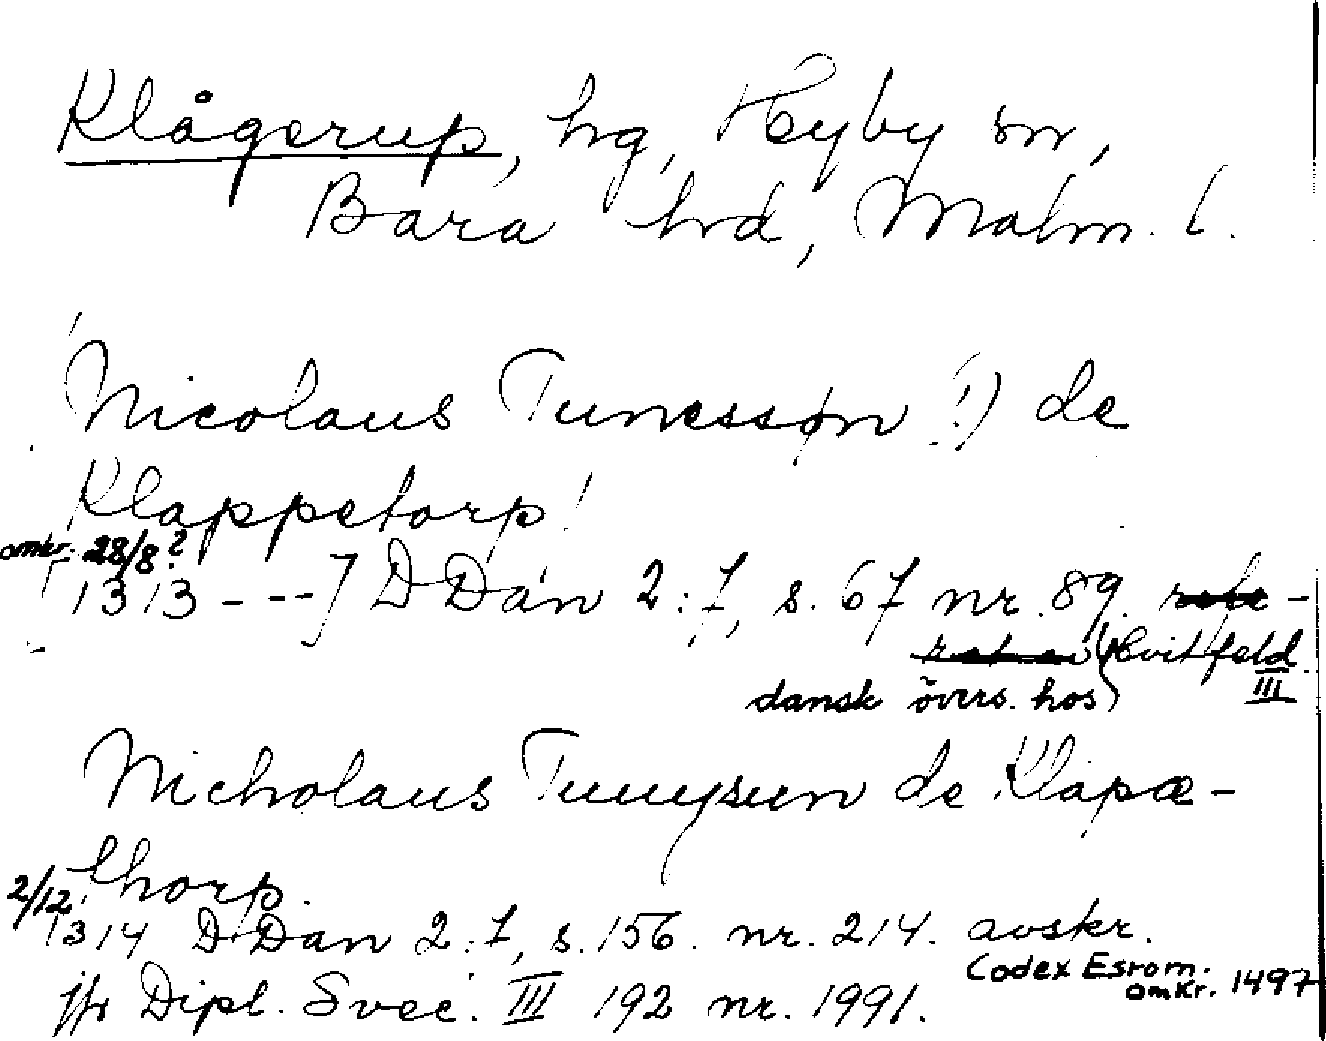 Klågerup, hg, Hyby sn,
Bara hrd, Malm. l.
Nicolaus Tunessøn !) de
Klappetorp!
omkr. 28/8?
[1313 - - -] D Dan 2:7, s. 67 nr. 89.
Hvitfeld
dansk övers. hos III
Nicholaus Tuuysun de Klapæ-
thorp.
2/12
1314 D Dan 2:7, s. 156. nr. 214. avskr.
Codex Esrom.
omkr. 1497
jfr Dipl. Svec. III 192 nr. 1991.